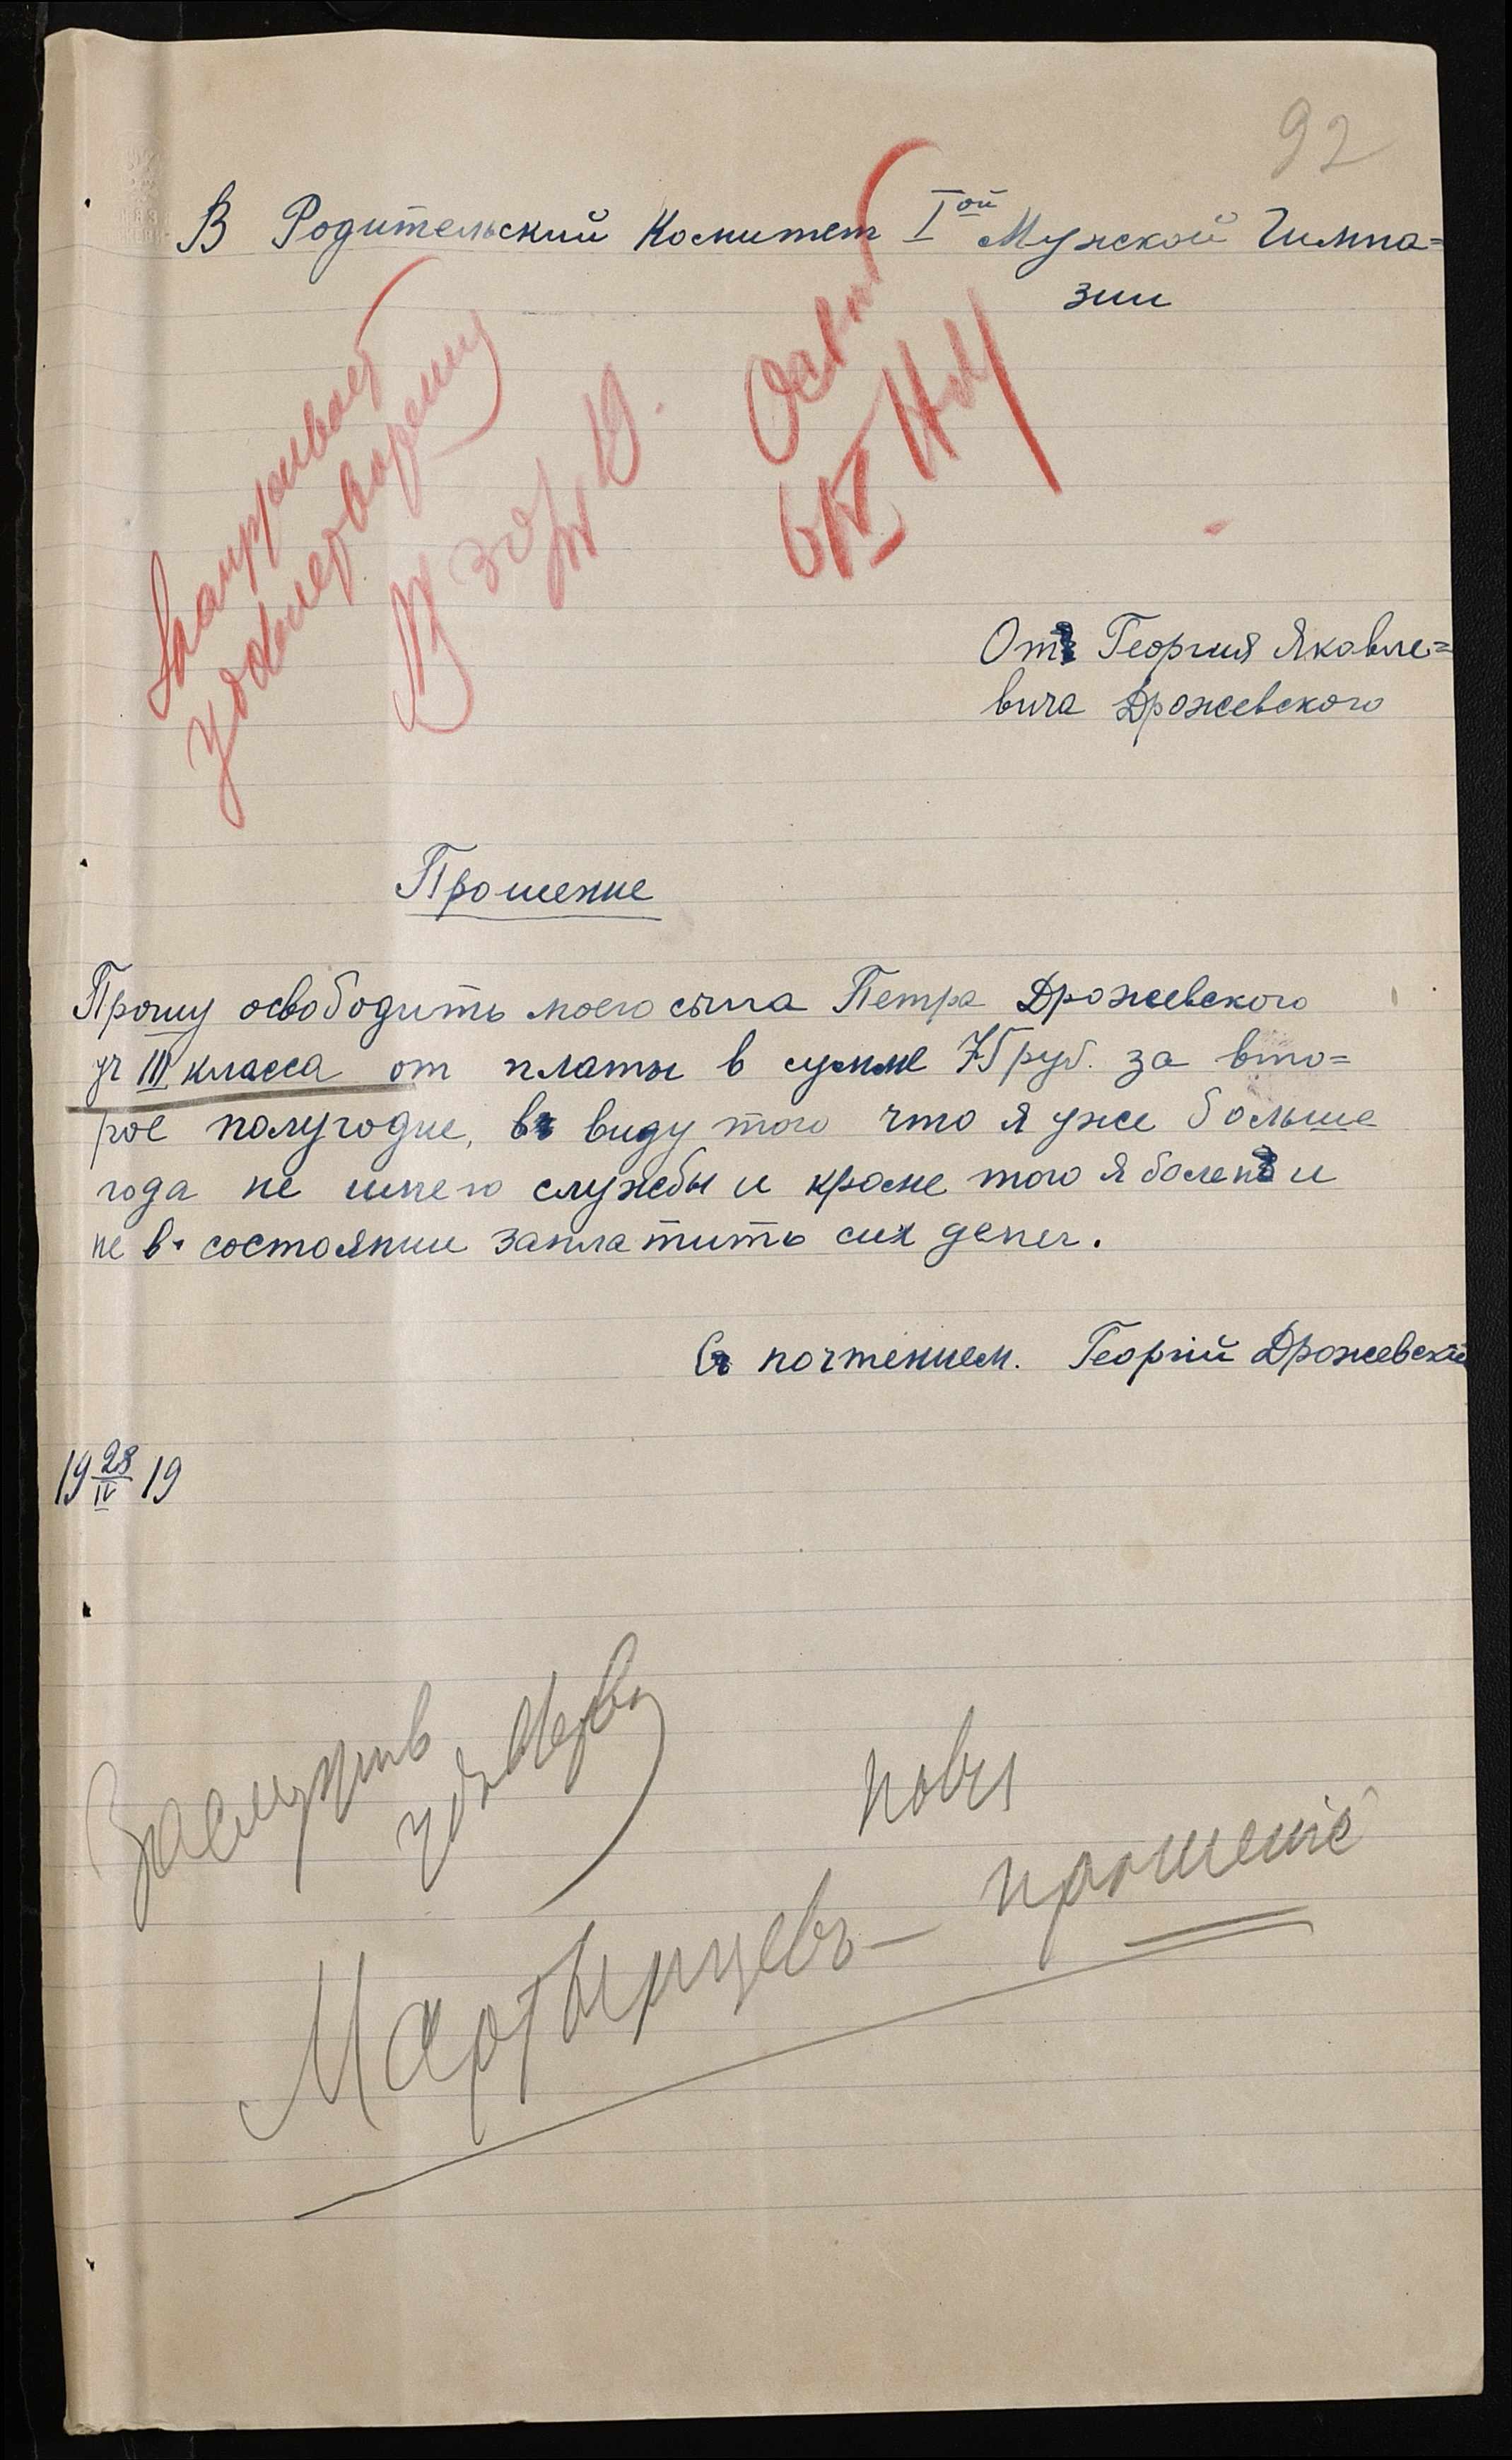 92
В Родительский Комитет I ой Мужской Гимна=
зии
удовлетворению
30/IV 19.
6/V
От Георгия Яковле=
вича Дрожевского
Прошение
Прошу освободить моего сына Петра Дрожевского
уч III класса от платы в сумме 75 руб. за вто=
рое полугодие, въ виду того что я уже больше
года не имею службы и кроме того я болен и
не в состоянии заплатить сих денег.
Съ почтением. Георгій Дрожевскій
19 28/IV 19
Заслужив
удовлетв
прошеніе
Мартынцевъ